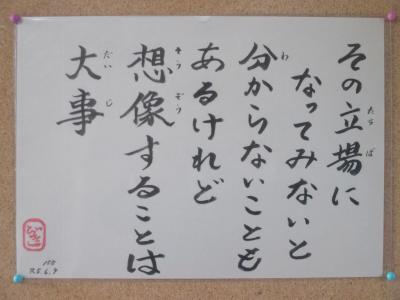 その立場に
たちば
なってみないと
分からないことも
わ
あるけれど
想像することは
そうぞう
大事
だいじ